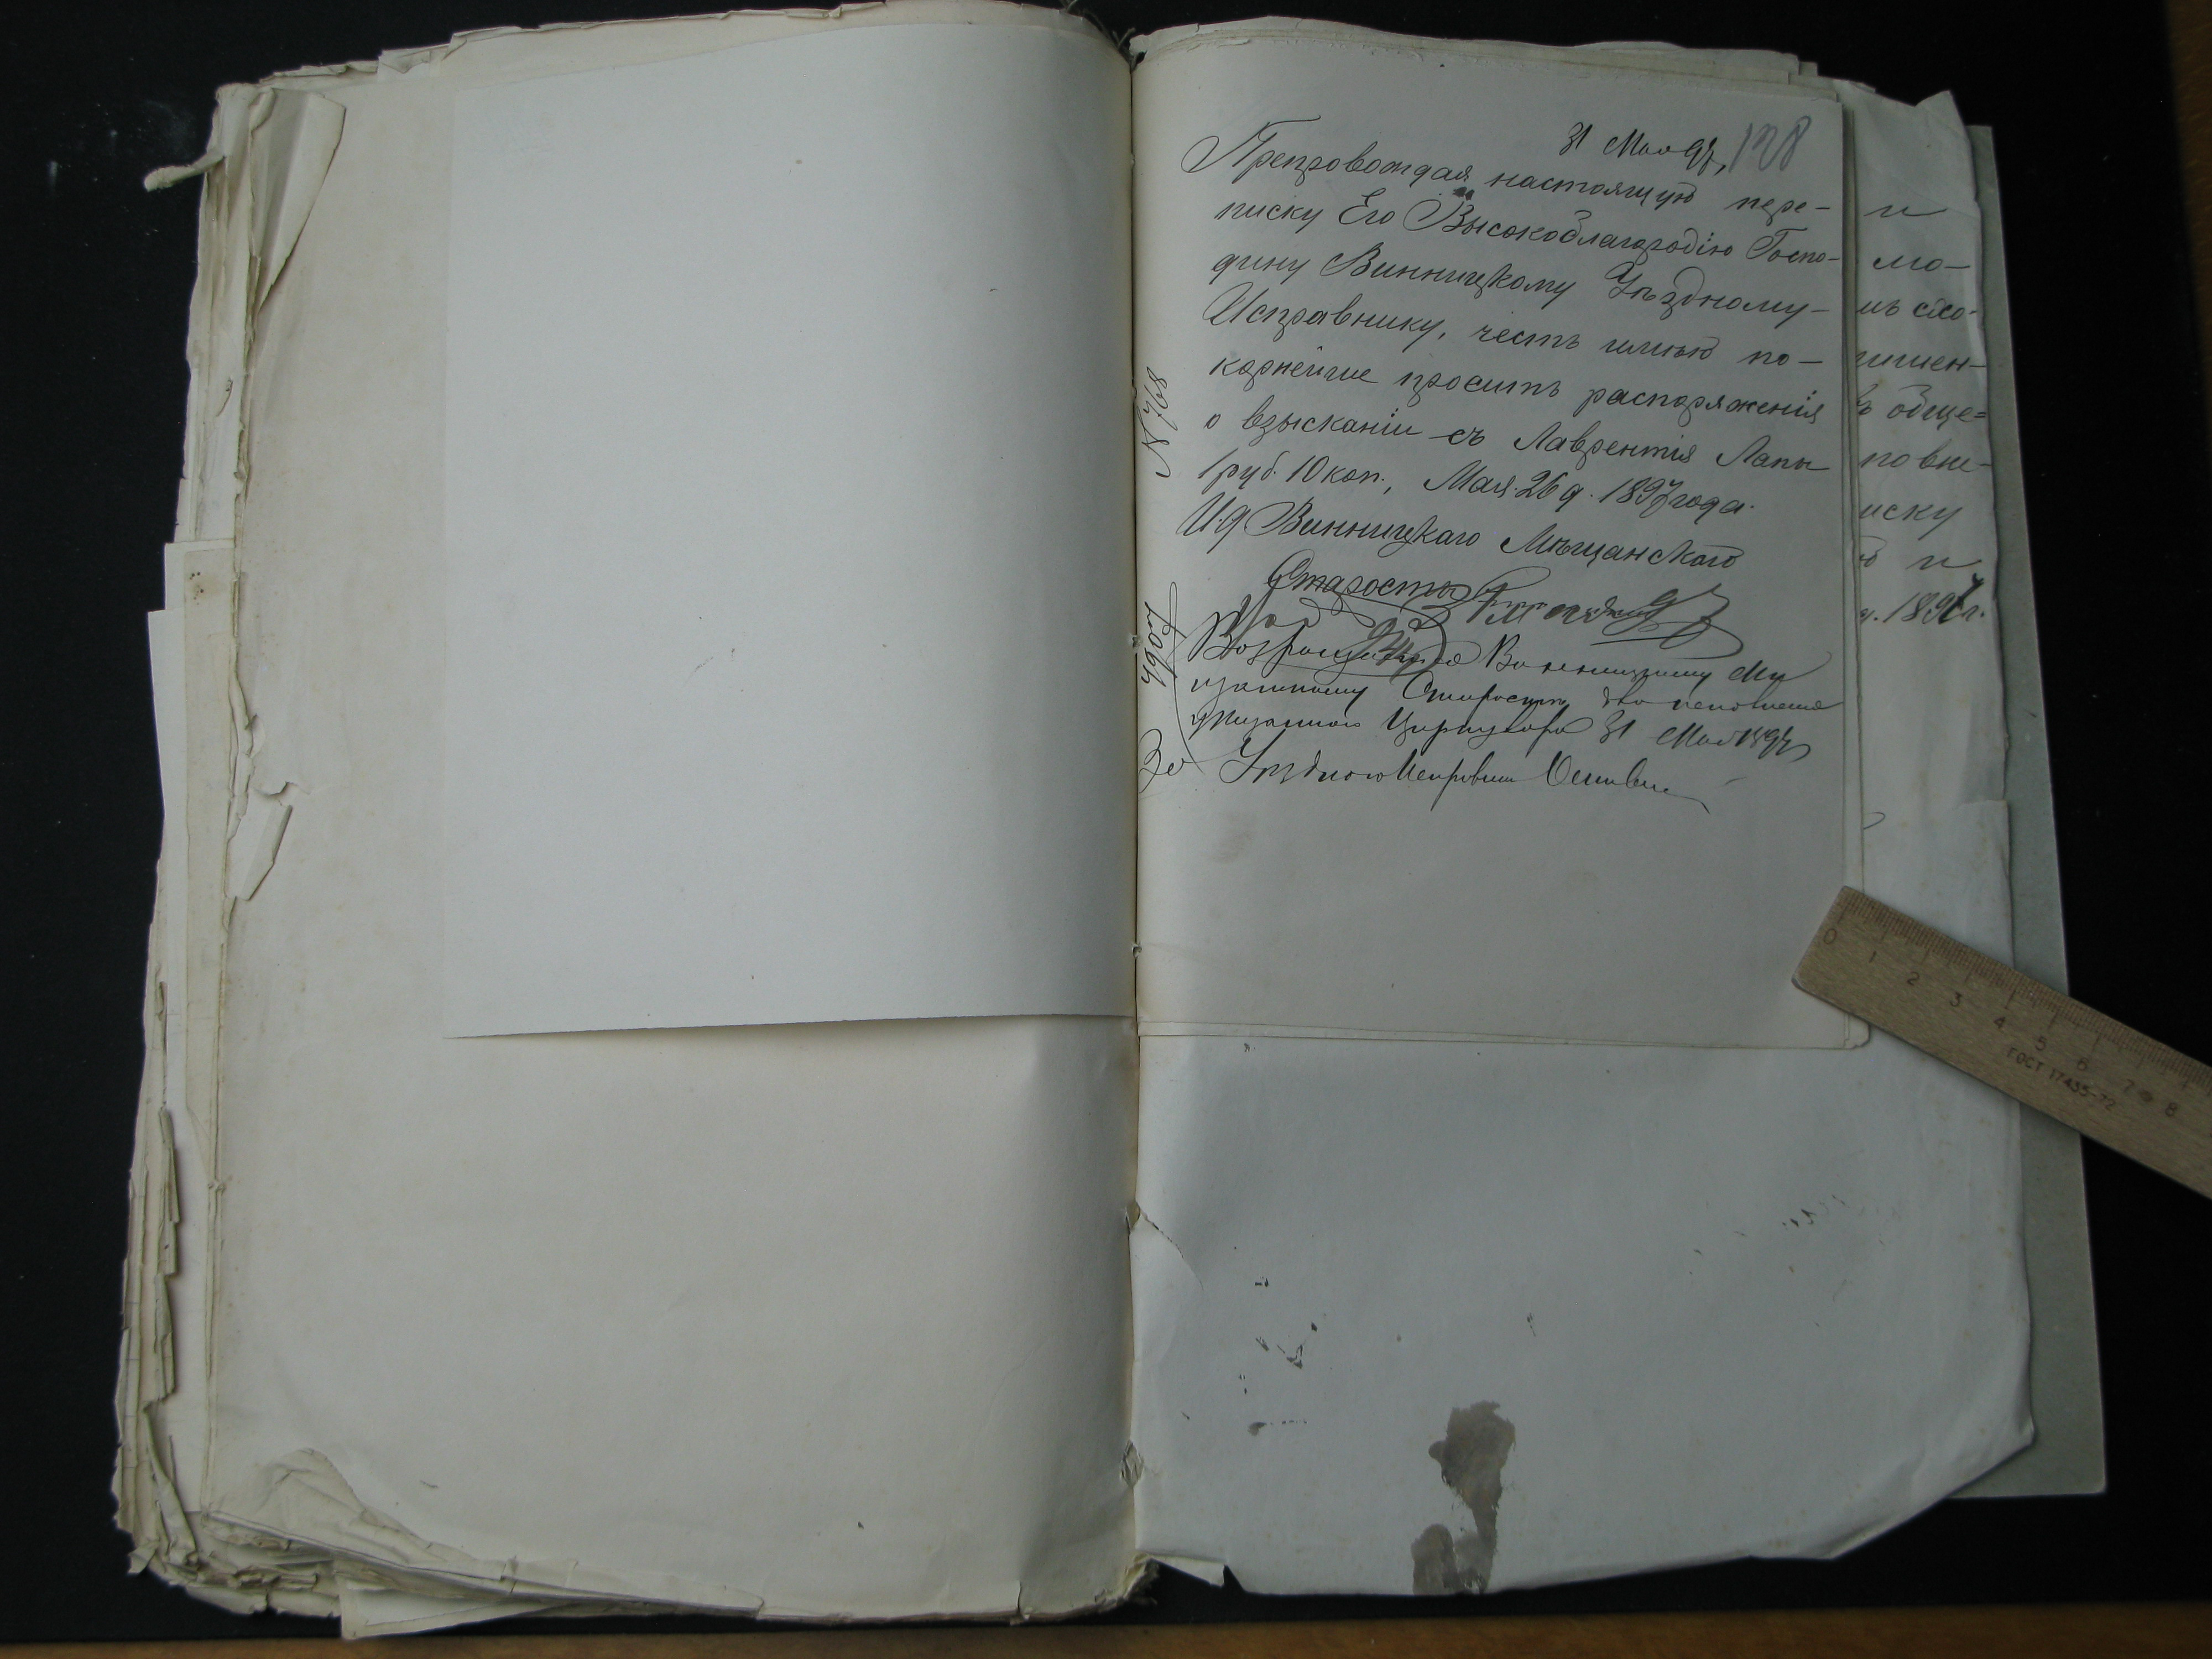 31 Мая 97, 128
Препровождая настоящую пере-
писку Его Высокоблагородію Госпо-
дину Винницкому Уѣздному-
Исправнику, честь имѣю по-
корнѣйше просить распоряженія
о взысканіи съ Лаврентія Лапы
1 руб. 10 коп., Мая 26 д. 1897 года.
И.д. Винницкаго Мѣщанскаго
Старосты
Возвращается Винницкому Мѣ
щанскому Старостѣ для исполненія
Циркуляра 31 Мая 1897
Уѣздного Исправник
N 768
4907
и
мо-
обще=
иску
и
1897 г.
0 1 2 3 4 5 6 7 8
ГОСТ 17435-72